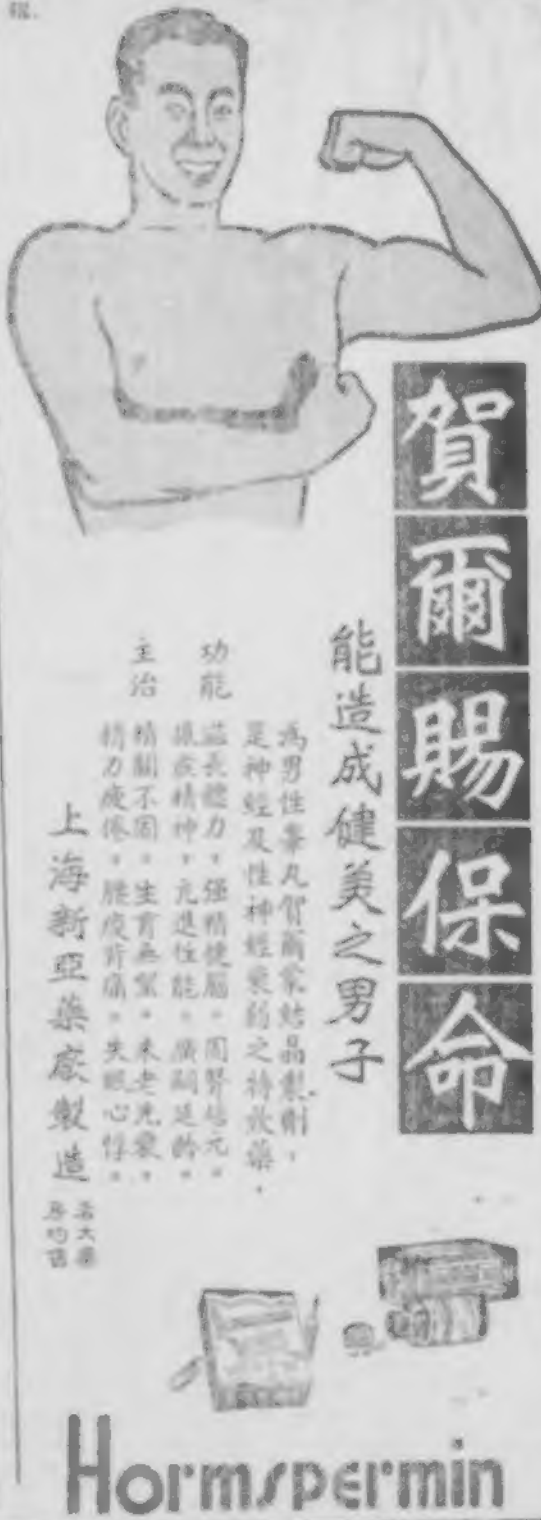 賀爾賜保命
能造成健美之男子
為男性睾丸賀爾蒙結晶製劑，
是神經及性神經衰弱之特效藥，
功能 益長體力，強精健腦。固腎培元。
振疲精神，亢進性能。廣嗣延齡。
主治 精關不固。生育無望。未老先衰，
精力疲倦。腰痠背痛。失眠心悸。
上海新亞藥廠製造
各大藥
房均售
Hormspermin